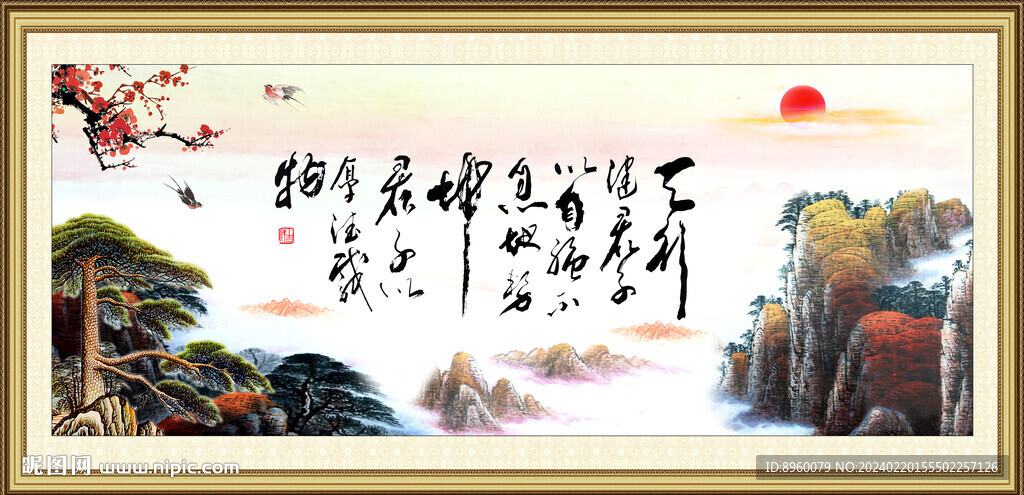 天行
健君子
以自强不
息地势
坤
君子以
厚德载
物
昵图网 www.nipic.com
ID:8960079 NO:20240220155502257126